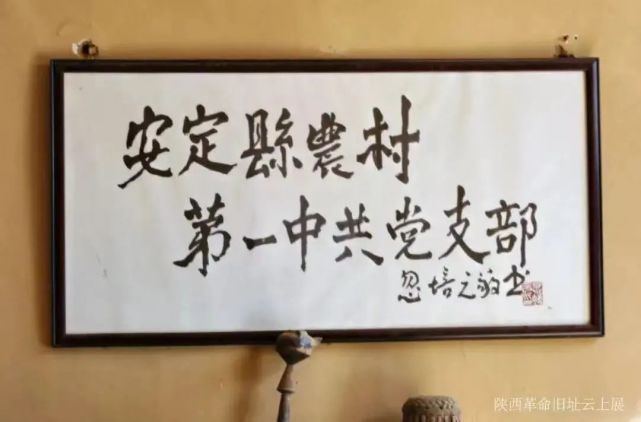 安定縣農村
第一中共党支部
忽培元敬书
陕西革命旧址云上展